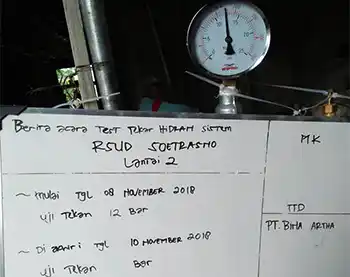 Berita acara TEST Tekan HIDRAN SISTEM
RSUD SOETRASNO
Lantai 2
~ mulai TGL 08 NOVEMBER 2018
uji Tekan 12 Bar
~ Di akhiri TGL 10 NOVEMBER 2018
uji Tekan Bar
MK
TTD
PT. BIMA ARTHA